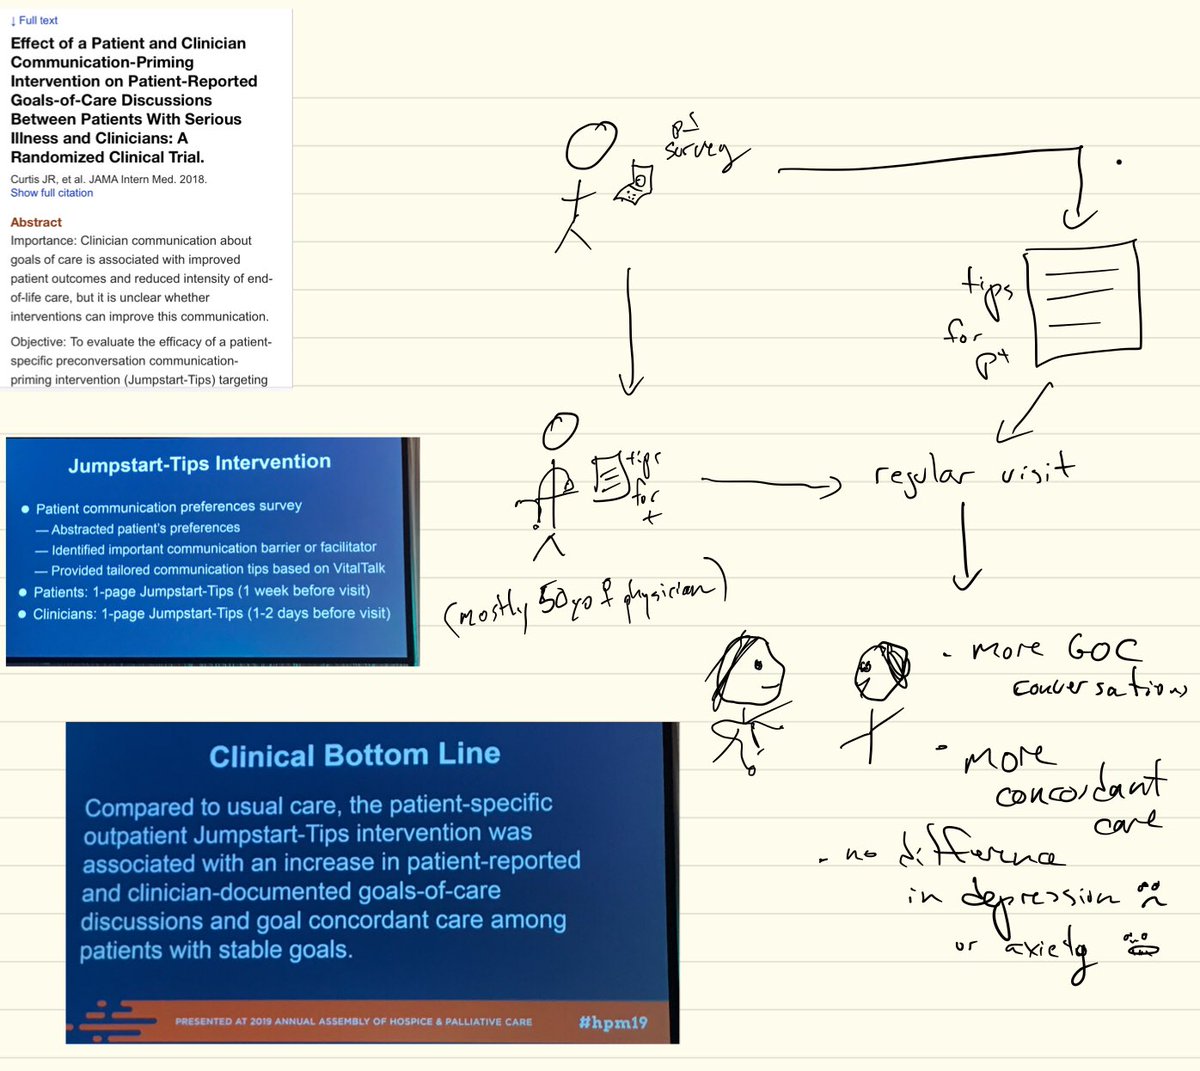 ↓ Full text
Effect of a Patient and Clinician
Communication-Priming
Intervention on Patient-Reported
Goals-of-Care Discussions
Between Patients With Serious
Illness and Clinicians: A
Randomized Clinical Trial.
Curtis JR, et al. JAMA Intern Med. 2018.
Show full citation
Abstract
Importance: Clinician communication about
goals of care is associated with improved
patient outcomes and reduced intensity of end-
of-life care, but it is unclear whether
interventions can improve this communication.
Objective: To evaluate the efficacy of a patient-
specific preconversation communication-
priming intervention (Jumpstart-Tips) targeting
survey
tips
for
pt
Jumpstart-Tips Intervention
● Patient communication preferences survey
— Abstracted patient's preferences
— Identified important communication barrier or facilitator
— Provided tailored communication tips based on VitalTalk
● Patients: 1-page Jumpstart-Tips (1 week before visit)
● Clinicians: 1-page Jumpstart-Tips (1-2 days before visit)
tips
for
regular visit
(mostly 50yo ♀ physician)
- more GOC
conversations
- more
concordant
care
- no difference
in depression
or axiety
Clinical Bottom Line
Compared to usual care, the patient-specific
outpatient Jumpstart-Tips intervention was
associated with an increase in patient-reported
and clinician-documented goals-of-care
discussions and goal concordant care among
patients with stable goals.
PRESENTED AT 2019 ANNUAL ASSEMBLY OF HOSPICE & PALLIATIVE CARE
#hpm19